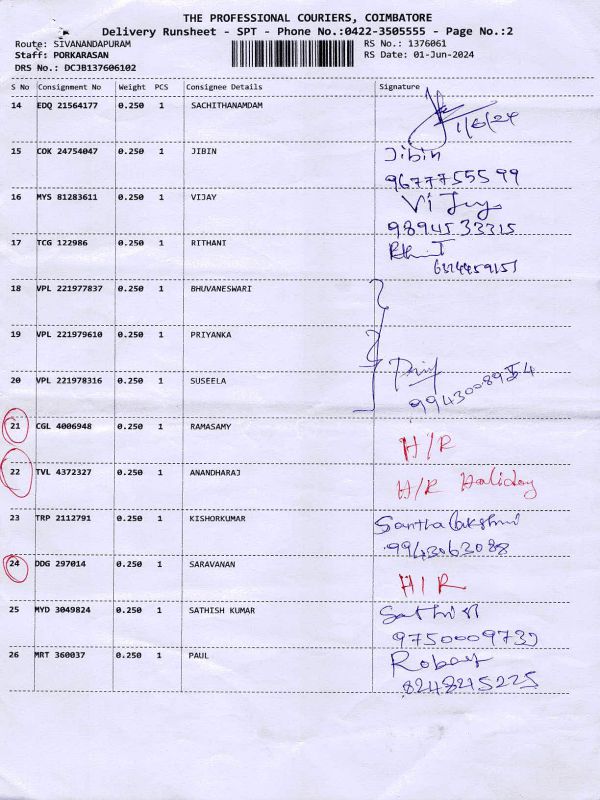 THE PROFESSIONAL COURIERS, COIMBATORE
Delivery Runsheet - SPT - Phone No.:0422-3505555 - Page No.:2
Route: SIVANANDAPURAM RS No.: 1376061
Staff: PORKARASAN RS Date: 01-Jun-2024
DRS No.: DCJB137606102
S No Consignment No Weight PCS Consignee Details Signature
14 EDQ 21564177 0.250 1 SACHITHANAMDAM
1/6/24
15 COK 24754047 0.250 1 JIBIN Jibin
9677755599
16 MYS 81283611 0.250 1 VIJAY Vijay
9894533315
17 TCG 122986 0.250 1 RITHANI
18 VPL 221977837 0.250 1 BHUVANESWARI
19 VPL 221979610 0.250 1 PRIYANKA
20 VPL 221978316 0.250 1 SUSEELA
21 CGL 4006948 0.250 1 RAMASAMY H/R
22 TVL 4372327 0.250 1 ANANDHARAJ H/R Holiday
23 TRP 2112791 0.250 1 KISHORKUMAR Santha Lakshmi
9943063088
24 DDG 297014 0.250 1 SARAVANAN H/R
25 MYD 3049824 0.250 1 SATHISH KUMAR
26 MRT 360037 0.250 1 PAUL
8248215225